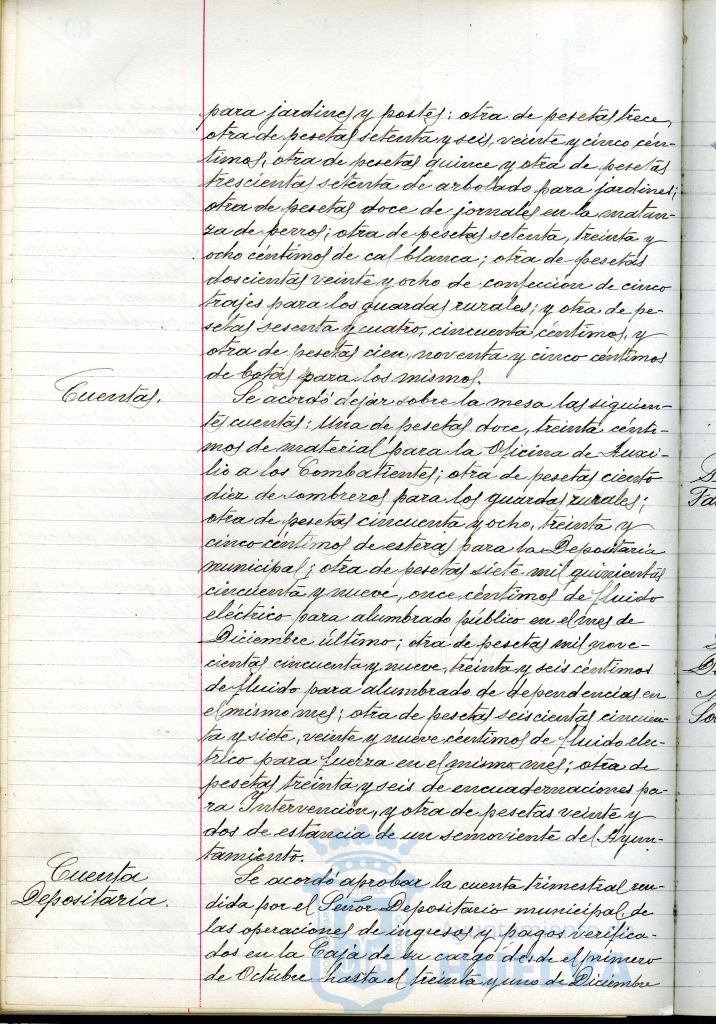 para jardines y postes; otra de pesetas trece,
otra de pesetas setenta y seis, veinte y cinco cén-
timos, otra de pesetas quince y otra de pesetas
trescientas setenta de arbolado para jardines;
otra de pesetas doce de jornales en la matan-
za de perros; otra de pesetas setenta, treinta y
ocho céntimos de cal blanca; otra de pesetas
doscientas veinte y ocho de confección de cinco
trajes para los guardas rurales; y otra de pe-
setas sesenta y cuatro, cincuenta céntimos, y
otra de pesetas cien, noventa y cinco céntimos
de botas para los mismos.
Cuentas.
Se acordó dejar sobre la mesa las siguien-
tes cuentas: Una de pesetas doce, treinta cénti-
mos de material para la Oficina de Auxi-
lio a los Combatientes; otra de pesetas ciento
diez de sombreros para los guardas rurales;
otra de pesetas cincuenta y ocho, treinta y
cinco céntimos de esteras para la Depositaría
municipal; otra de pesetas siete mil quinientas
cincuenta y nueve, once céntimos de fluido
eléctrico para alumbrado público en el mes de
Diciembre último; otra de pesetas mil nove-
cientas cincuenta y nueve, treinta y seis céntimos
de fluido para alumbrado de dependencias en
el mismo mes; otra de pesetas seiscientas cincuen-
ta y siete, veinte y nueve céntimos de fluido eléc-
trico para fuerza en el mismo mes; otra de
pesetas treinta y seis de encuadernaciones pa-
ra Intervención, y otra de pesetas veinte y
dos de estancia de un semoviente del Ayun-
tamiento.
Cuenta
Depositaría.
Se acordó aprobar la cuenta trimestral ren-
dida por el Señor Depositario municipal, de
las operaciones de ingresos y pagos verifica-
dos en la Caja de su cargo desde el primero
de Octubre hasta el treinta y uno de Diciembre
HUELVA